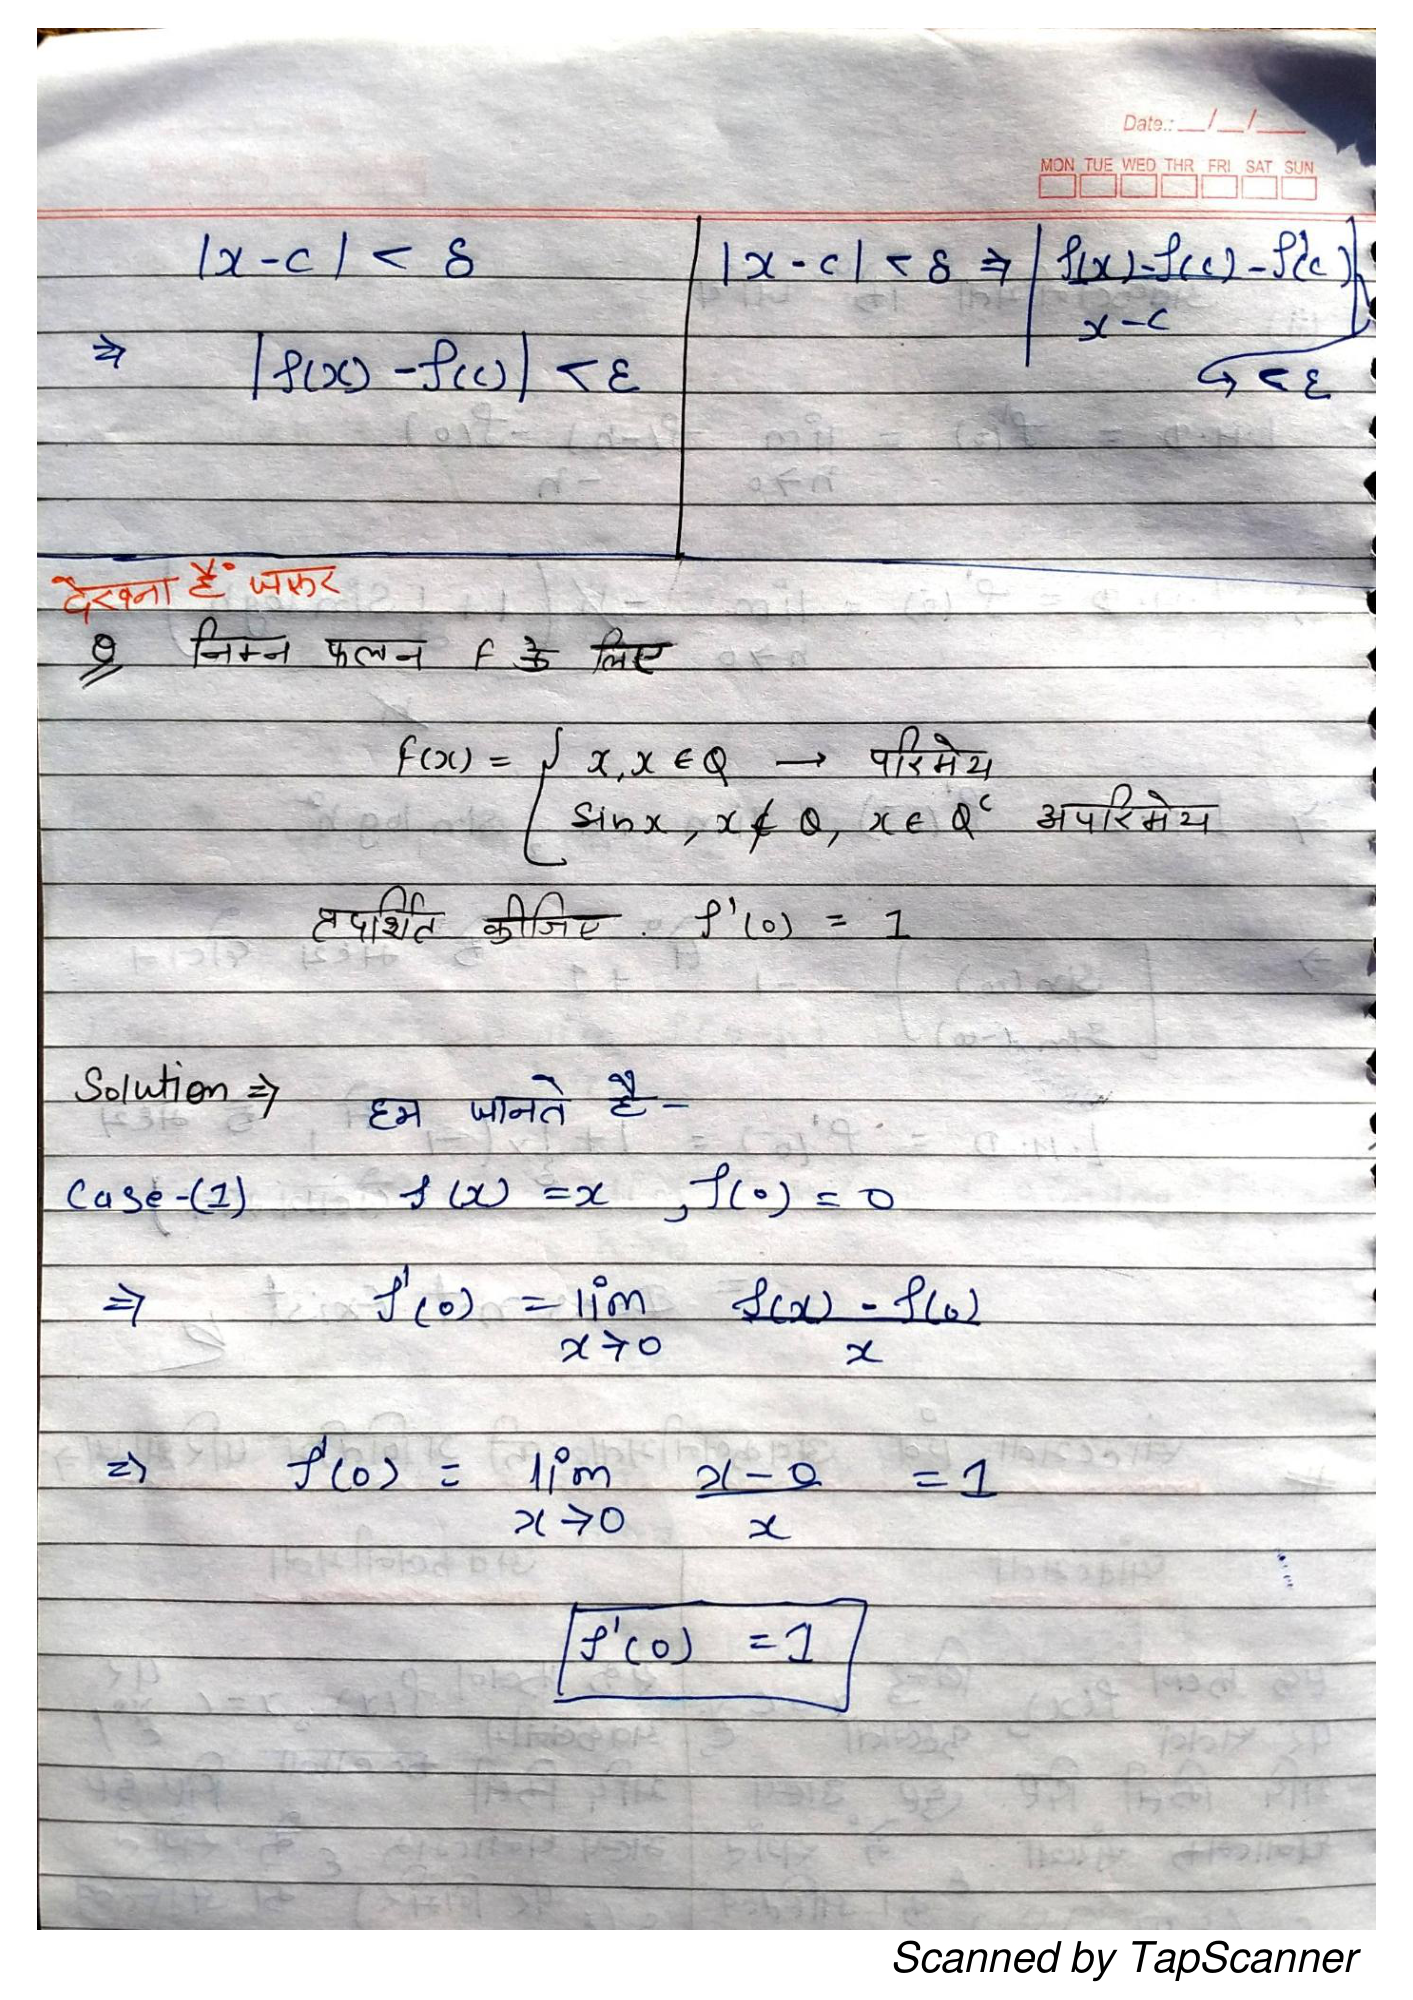 Date.: __/__/__
MON TUE WED THR FRI SAT SUN
|x-c| < δ
⇒ |f(x) - f(c)| < ε
|x-c| < δ ⇒ |f(x)-f(c) - f'(c)|
x-c
↪ < ε
देखना है जरूर
Q निम्न फलन f के लिए
f(x) = { x, x ∈ Q → परिमेय
sinx, x ∉ Q, x ∈ Q^c अपरिमेय
प्रदर्शित कीजिए f'(0) = 1
Solution ⇒ हम जानते है -
Case-(1) f(x) = x , f(0) = 0
⇒ f'(0) = lim f(x) - f(0)
x→0 x
⇒ f'(0) = lim x-0 = 1
x→0 x
f'(0) = 1
Scanned by TapScanner